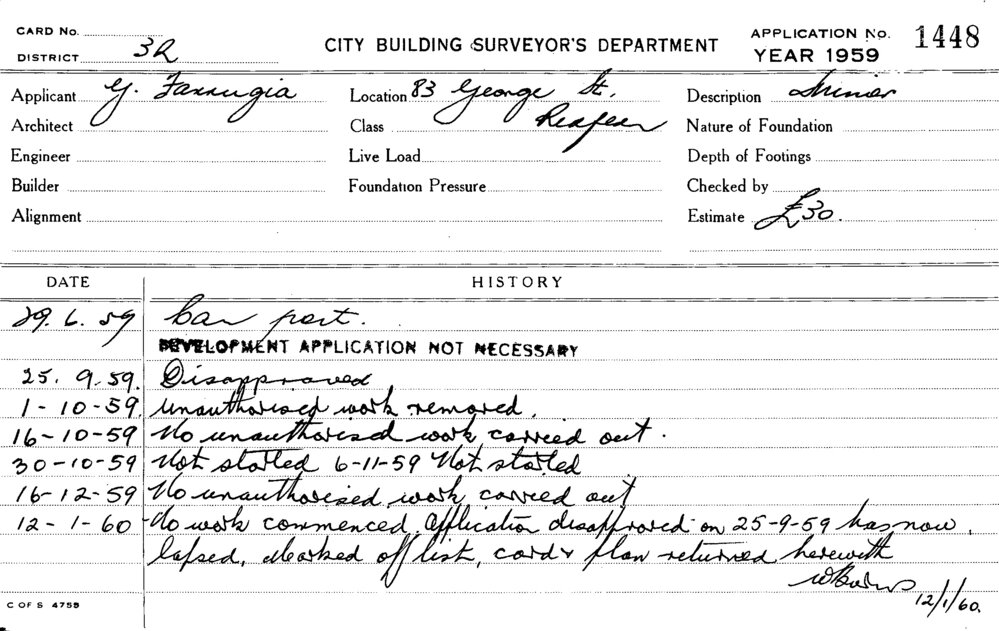 CARD No.
DISTRICT 3R
CITY BUILDING SURVEYOR'S DEPARTMENT
APPLICATION No. 1448
YEAR 1959
Applicant G. Farrugia Location 83 George St. Description Minor
Architect Class Redfern Nature of Foundation
Engineer Live Load Depth of Footings
Builder Foundation Pressure Checked by
Alignment Estimate £30.
DATE HISTORY
29.6.59 Car port.
DEVELOPMENT APPLICATION NOT NECESSARY
25.9.59. Disapproved
1-10-59. Unauthorised work removed.
16-10-59 No unauthorised work carried out.
30-10-59 Not started 6-11-59 Not started
16-12-59 No unauthorised work carried out
12-1-60 No work commenced. Application disapproved on 25-9-59 has now
lapsed, marked off list, card & plan returned herewith
12/1/60.
C OF S 4759